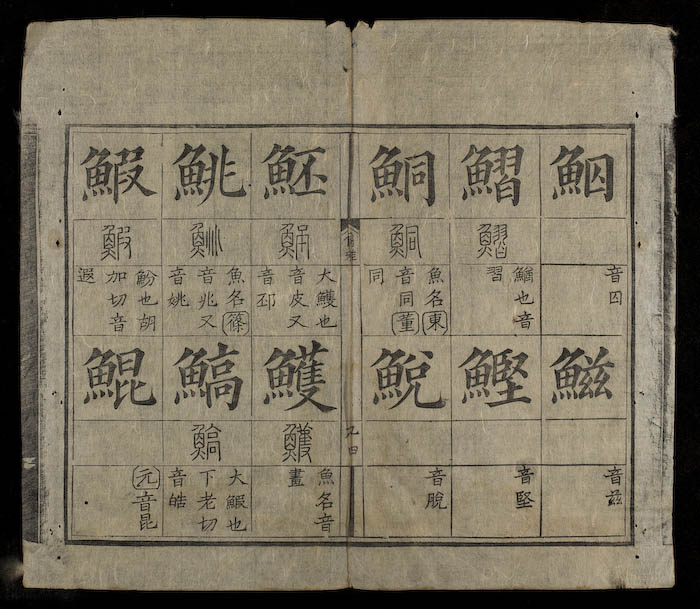 鮂
音囚
鰦
音兹
鰼
鰼
鰌也音
習
鰹
音堅
鮦
鮦
魚名東
音同董
同
鮵
音脫
九四
魾
魾
大鱯也
音皮又
音邳
鱯
鱯
魚名音
畫
鮡
鮡
魚名篠
音兆又
音姚
鰝
鰝
大鰕也
下老切
音皓
鰕
鰕
魵也胡
加切音
遐
鯤
元音昆